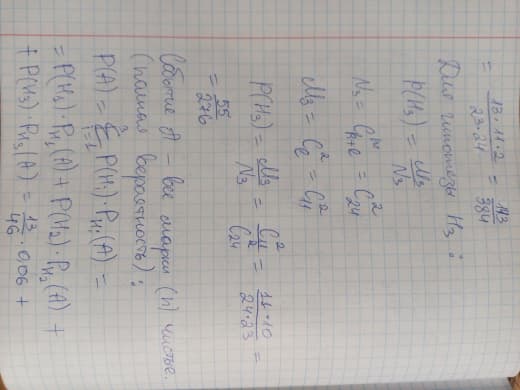 = 13·11·2 / 23·24 = 143 / 384
Для гипотезы H₃ :
P(H₃) = M₃ / N₃
N₃ = Cⁿₖ₊ₑ = C²₂₄
M₃ = C²ₑ = C²₁₁
P(H₃) = M₃ / N₃ = C²₁₁ / C²₂₄ = 11·10 / 24·23 =
= 55 / 276
Событие A – все марки (n) чистые.
(полная вероятность) :
P(A) = ³Σᵢ₌₁ P(Hᵢ)·P_Hᵢ(A) =
= P(H₁)·P_H₁(A) + P(H₂)·P_H₂(A) +
+ P(H₃)·P_H₃(A) = 13 / 46 · 0,06 +